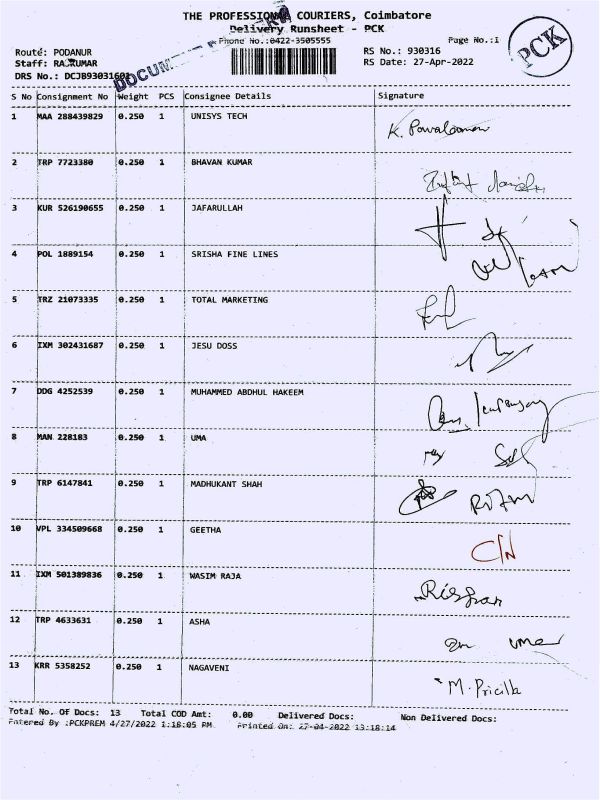 THE PROFESSIONAL COURIERS, Coimbatore
Delivery Runsheet - PCK
Phone No.:0422-3505555
Page No.:1
PCK
Routé: PODANUR
RS No.: 930316
Staff: RAJKUMAR
RS Date: 27-Apr-2022
DRS No.: DCJB93031601
S No Consignment No Weight PCS Consignee Details Signature
1 MAA 288439829 0.250 1 UNISYS TECH
2 TRP 7723380 0.250 1 BHAVAN KUMAR
3 KUR 526190655 0.250 1 JAFARULLAH
4 POL 1889154 0.250 1 SRISHA FINE LINES
5 TRZ 21073335 0.250 1 TOTAL MARKETING
6 IXM 302431687 0.250 1 JESU DOSS
7 DDG 4252539 0.250 1 MUHAMMED ABDHUL HAKEEM
8 MAN 228183 0.250 1 UMA
9 TRP 6147841 0.250 1 MADHUKANT SHAH
10 VPL 334509668 0.250 1 GEETHA C/N
11 IXM 501389836 0.250 1 WASIM RAJA
12 TRP 4633631 0.250 1 ASHA
13 KRR 5358252 0.250 1 NAGAVENI M. Pricilla
Total No. OF Docs: 13 Total COD Amt: 0.00 Delivered Docs: Non Delivered Docs:
Entered By :PCKPREM 4/27/2022 1:18:05 PM Printed On: 27-04-2022 13:18:14